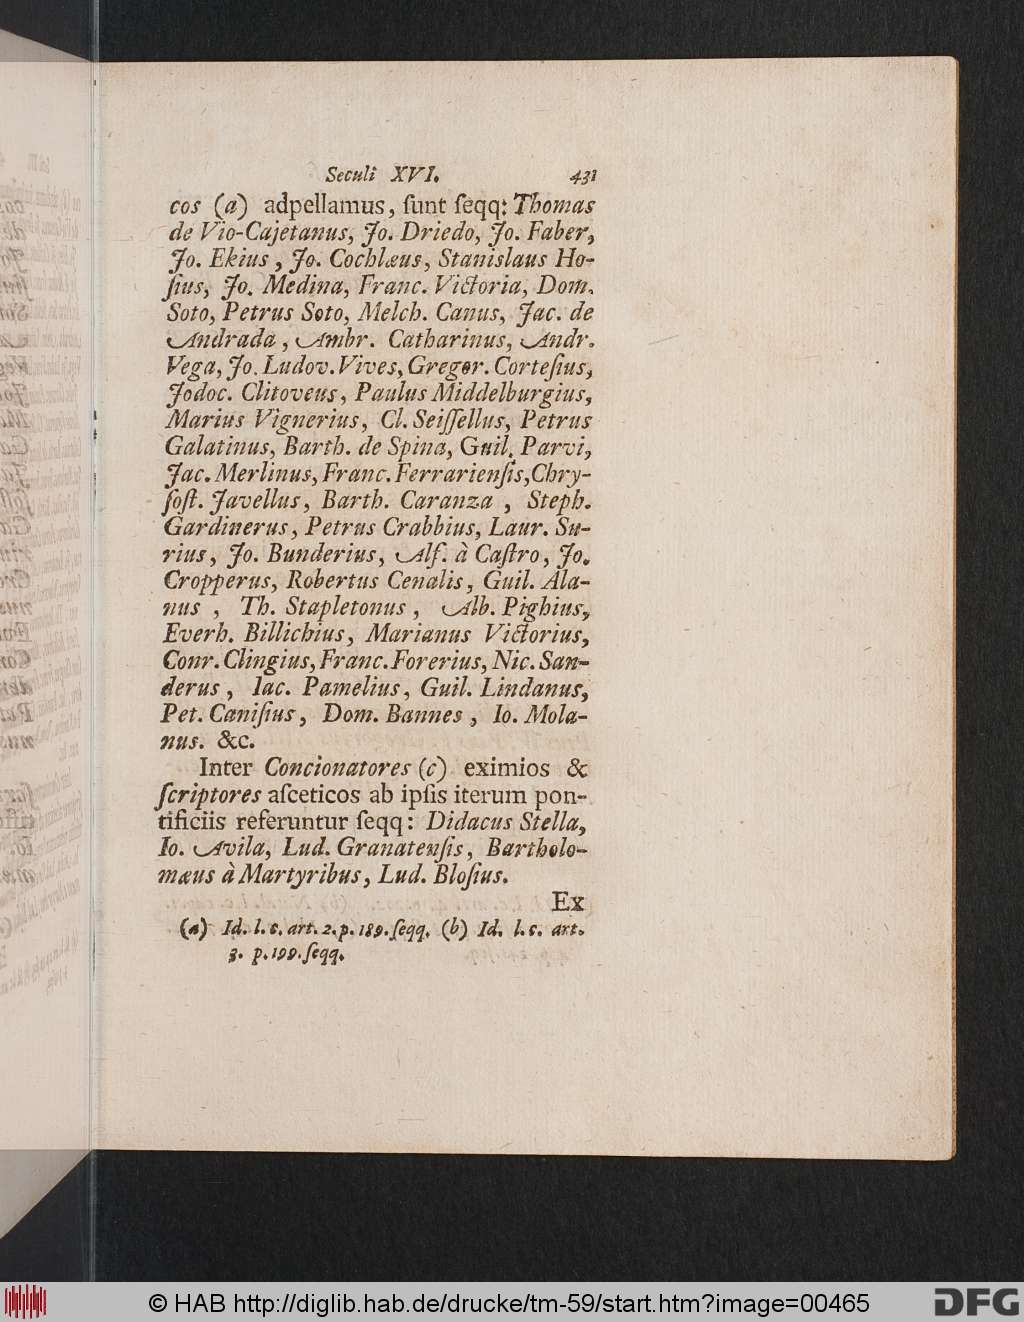 Seculi XVI. 431
cos (a) adpellamus, ſunt ſeqq: Thomas
de Vio-Cajetanus, Jo. Driedo, Jo. Faber,
Jo. Ekius, Jo. Cochlæus, Stanislaus Ho-
ſius, Jo. Medina, Franc. Victoria, Dom.
Soto, Petrus Soto, Melch. Canus, Jac. de
Andrada, Ambr. Catharinus, Andr.
Vega, Jo. Ludov. Vives, Gregor. Corteſius,
Jodoc. Clitoveus, Paulus Middelburgius,
Marius Vignerius, Cl. Seiſſellus, Petrus
Galatinus, Barth. de Spina, Guil. Parvi,
Jac. Merlinus, Franc. Ferrarienſis, Chry-
ſoſt. Javellus, Barth. Caranza, Steph.
Gardinerus, Petrus Crabbius, Laur. Su-
rius, Jo. Bunderius, Alf. à Caſtro, Jo.
Cropperus, Robertus Cenalis, Guil. Ala-
nus, Th. Stapletonus, Alb. Pighius,
Everh. Billichius, Marianus Victorius,
Conr. Clingius, Franc. Forerius, Nic. San-
derus, Iac. Pamelius, Guil. Lindanus,
Pet. Caniſius, Dom. Bannes, Io. Mola-
nus. &c.
Inter Concionatores (c) eximios &
ſcriptores aſceticos ab ipſis iterum pon-
tificiis referuntur ſeqq: Didacus Stella,
Io. Avila, Lud. Granatenſis, Bartholo-
mæus à Martyribus, Lud. Bloſius.
Ex
(a) Id. l. c. art. 2. p. 189. ſeqq. (b) Id. l. c. art.
3. p. 199. ſeqq.
© HAB http://diglib.hab.de/drucke/tm-59/start.htm?image=00465
DFG